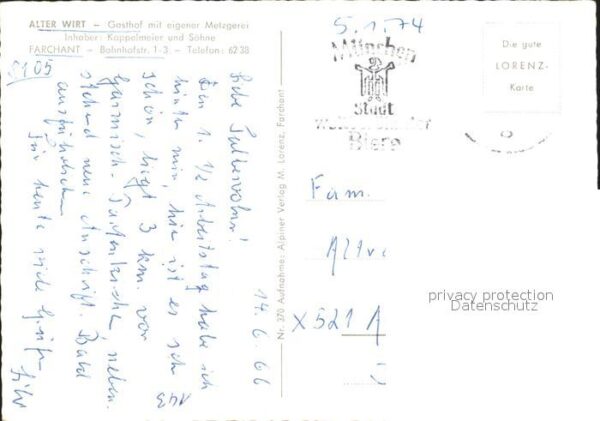 ALTER WIRT – Gasthof mit eigener Metzgerei
Inhaber: Kappelmeier und Söhne
FARCHANT – Bahnhofstr. 1-3 – Telefon: 6238
8105
14.6.66
Den 1. 1/2 Arbeitstag habe ich
hinter mir, hier ist es sehr
schön, liegt 3 km. vor
Garmisch-Partenkirchen, neben-
stehend neue Anschrift. Bald
ausführlicher
Für heute viele Grüße
143
Nr. 370 Aufnahme: Alpiner Verlag M. Lorenz, Farchant
5.1.74
München
Stadt
Biers
Die gute
LORENZ-
Karte
Fam.
X 521 A
privacy protection
Datenschutz